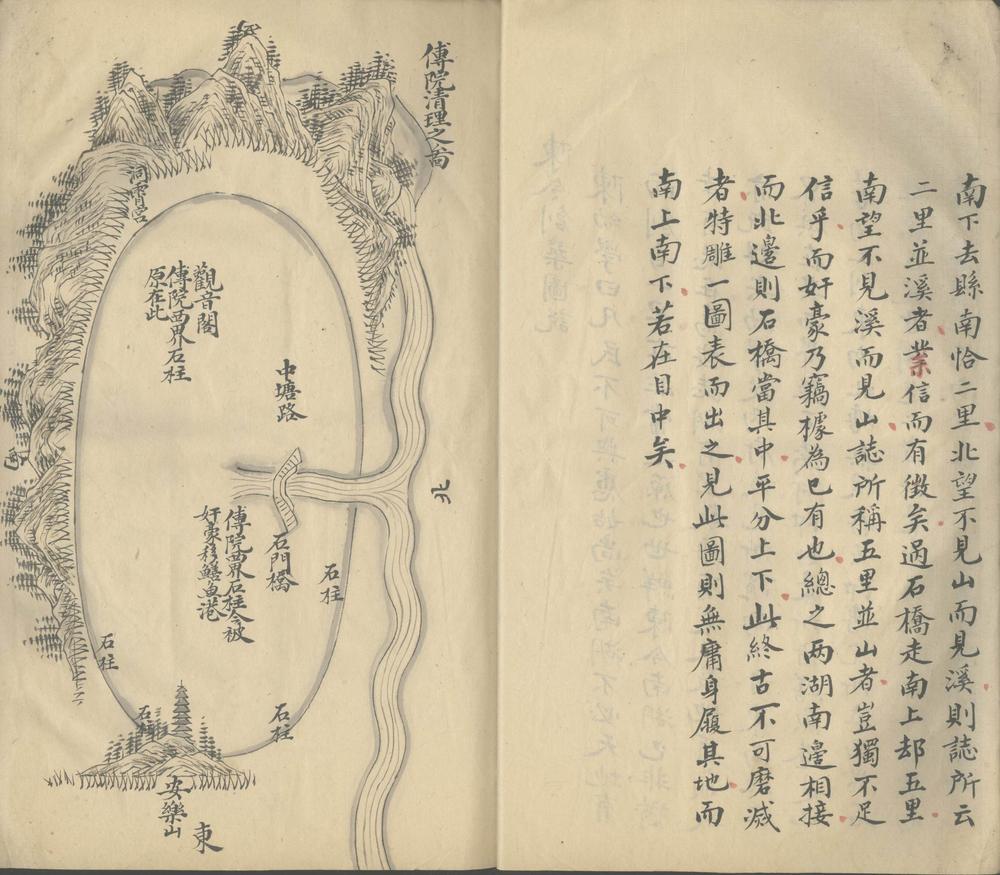 南下去縣南恰二里北望不見山而見溪則誌所云
二里並溪者業信而有徴矣過石橋走南上却五里
南望不見溪而見山誌所稱五里並山者豈獨不足
信乎而奸豪乃竊據為已有也總之两湖南邊相接
而北邊則石橋當其中平分上下此終古不可磨滅
者特雕一圖表而出之見此圖則無庸身履其地而
南上南下若在目中矣
傅院清理之啚
洞霄宮
觀音閣
傅院西界石柱
原在此
中塘路
北
石門橋
傅院西界石柱今被
奸豪移鱔魚港
石柱
石柱
石柱
石柱
安樂山
東